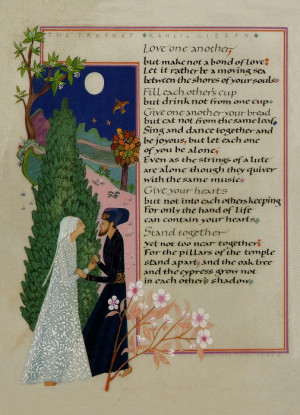 THE PROPHET KAHLIL GIBRAN
Love one another
but make not a bond of love:
Let it rather be a moving sea
between the shores of your souls.
Fill each other's cup
but drink not from one cup.
Give one another your bread
but eat not from the same loaf.
Sing and dance together and
be joyous, but let each one
of you be alone,
Even as the strings of a lute
are alone though they quiver
with the same music.
Give your hearts
but not into each others keeping
For only the hand of life
can contain your hearts.
Stand together
yet not too near together:
For the pillars of the temple
stand apart, and the oak tree
and the cypress grow not
in each other's shadow.